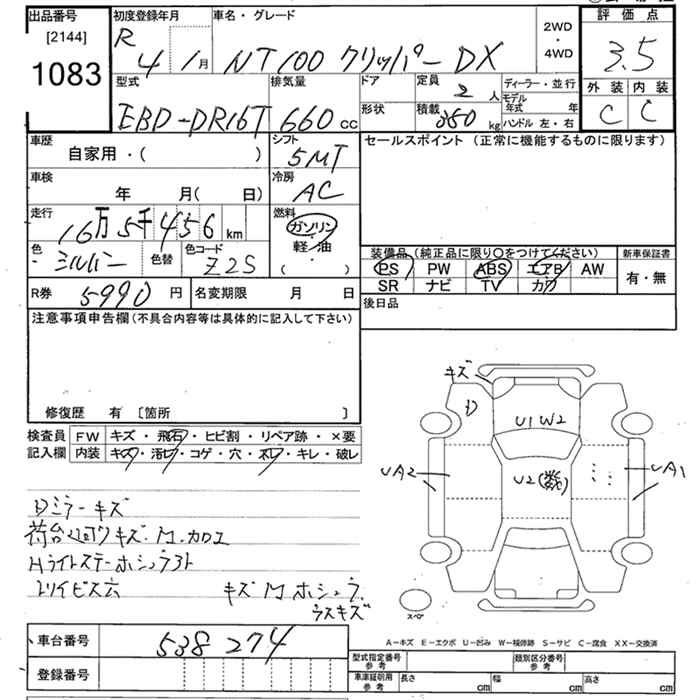 出品番号 初度登録年月 車名・グレード 2WD・4WD 評価点
[2144] R 4 1月 NT100 クリッパー DX 3.5
1083
型式 排気量 ドア 定員 2 人 ディーラー・並行 外装 内装
EBD-DR16T 660 cc 形状 積載 350 kg モデル年式 年 C C
ハンドル 左・右
車歴 シフト セールスポイント (正常に機能するものに限ります)
自家用・( ) 5MT
車検 冷房
年 月( 日) AC
走行 燃料
16万5千456 km ガソリン
色 色替 色コード 軽油 装備品 (純正品に限り○をつけてください) 新車保証書
シルバー Z2S ( ) PS PW ABS エアB AW 有・無
R券 5990 円 名変期限 月 日 SR ナビ TV カワ
後日品
注意事項申告欄 (不具合内容等は具体的に記入して下さい)
修復歴 有 〔箇所 〕
検査員 FW キズ・飛石・ヒビ割・リペア跡・×要
記入欄 内装 キズ・汚レ・コゲ・穴・ネレ・キレ・破レ
キズ
U1W2
UA2 U2(数) UA1
ミラーキズ
荷台 キズ.
キズ
ラスキズ
スペア
A-キズ E-エクボ U-凹み W-補修跡 S-サビ C-腐食 XX-交換済
車台番号 538274 型式指定番号 参考 類別区分番号 参考
登録番号 車庫証明用 参考 長さ cm 幅 cm 高さ cm